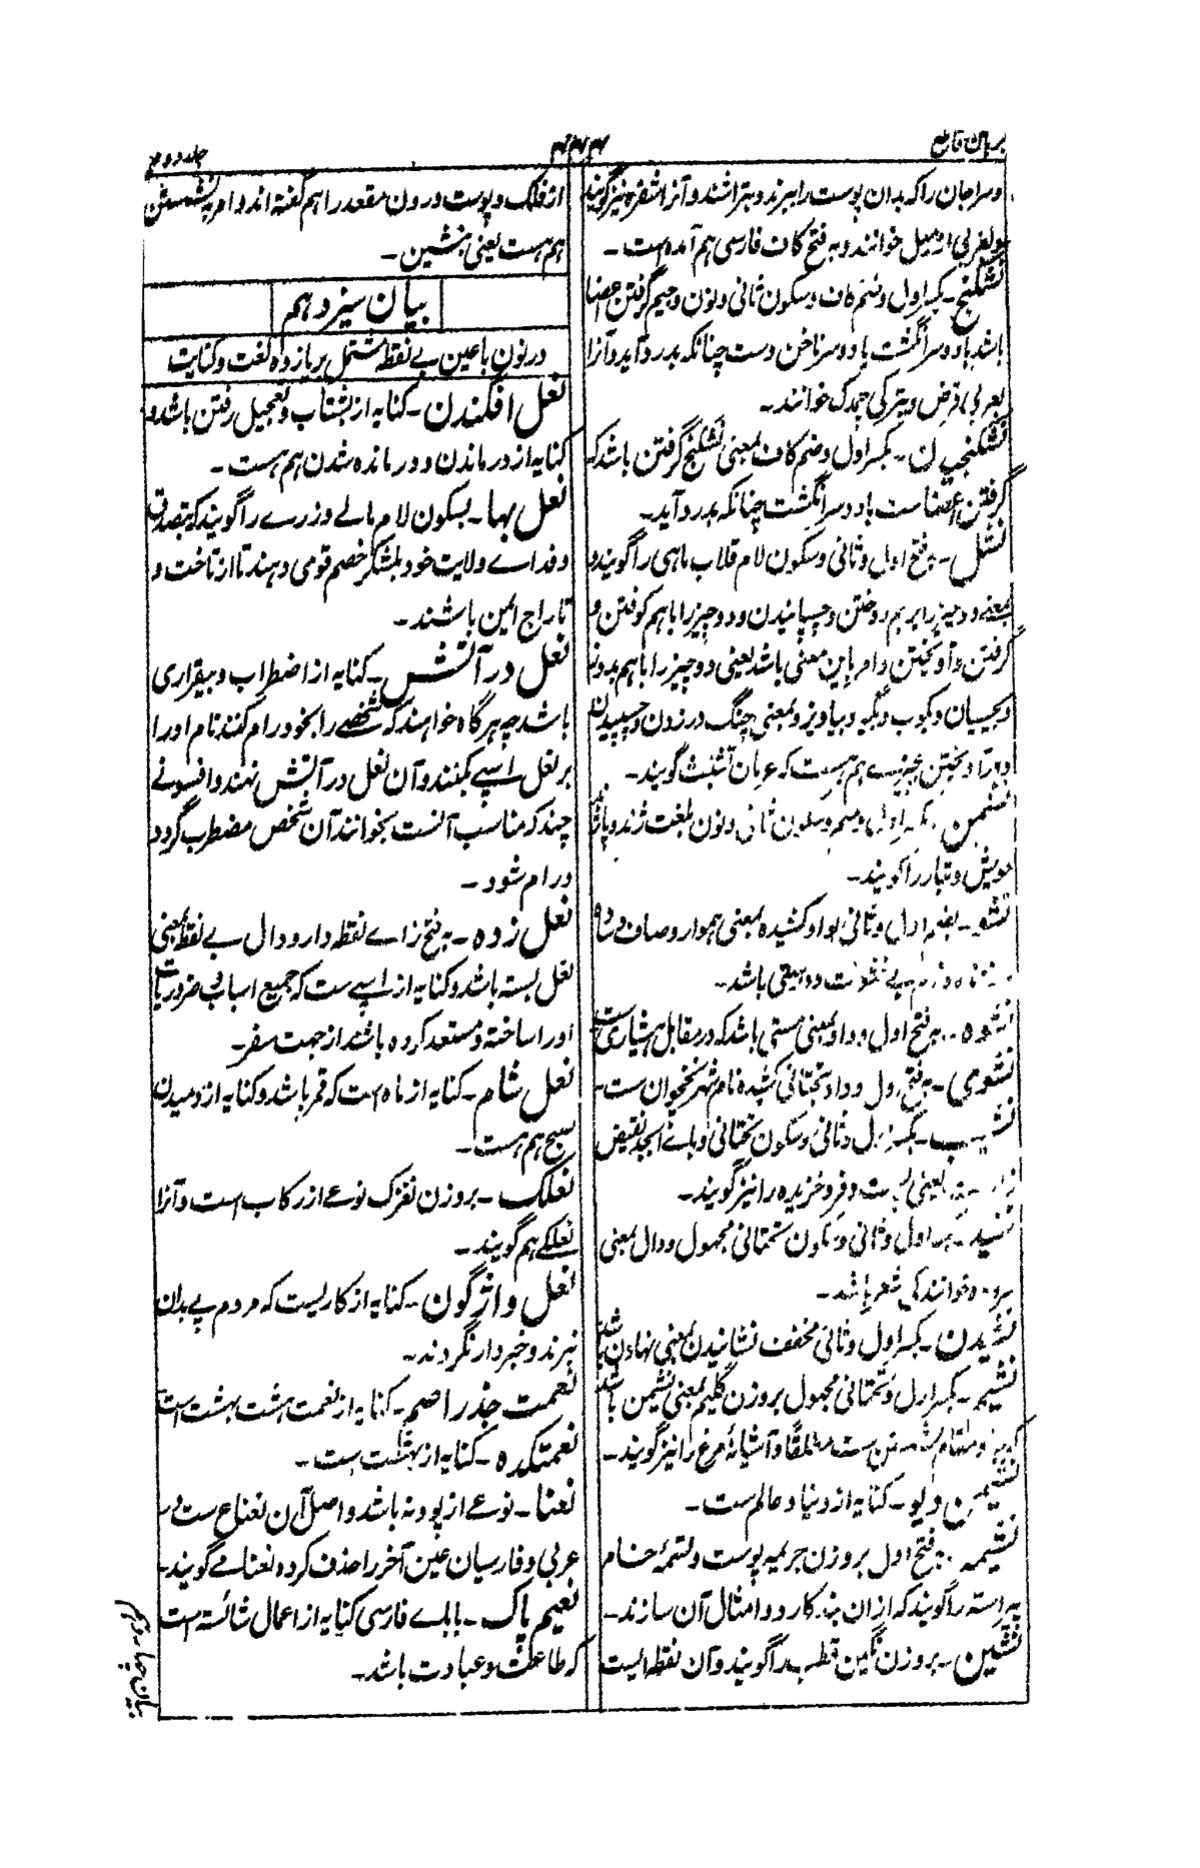 برهان قاطع
۴۴۴
جلد دوم
و سراجان را که بدان پوست را ببرند و بتراشند و آنرا شفره نیز گویند
و بعربی ازمیل خوانند و به فتح کاف فارسی هم آمده است ـ
نشکنج ـ بکسر اول و ضم کاف و سکون ثانی و نون و جیم گرفتن اعضا
باشد با دو سر انگشت یا دو سر ناخن دست چنانکه بدرد آید و آنرا
بعربی قرض و بترکی چمدک خوانند ـ
نشکنجیدن ـ بکسر اول و ضم کاف بمعنی نشکنج گرفتن باشد که
گرفتن اعضاست با دو سر انگشت چنانکه بدرد آید ـ
نشل ـ به فتح اول و ثانی و سکون لام قلاب ماهی را گویند و
بمعنے دو چیز را برهم دوختن و چسپانیدن و دو چیز را باهم کوفتن و
گرفتن و آویختن و امر باین معنی باشد یعنی دو چیز را باهم بدوز
و بچسپان و بکوب و بگیر و بیاویز و بمعنی چنگ در زدن و چسپیدن
و در آویختن بچیزے هم هست که عربان تشبث گویند ـ
نشمن ـ بکسر اول و میم و سکون ثانی و نون بلغت ژند و پاژند
خویش و تبار را گویند ـ
نشو ـ بضم اول و ثانی بواو کشیده بمعنی هموار و صاف و ساده
و نرم بے خشونت باشد ـ
نشوه ـ به فتح اول و واو بمعنی مستی باشد که در مقابل هشیاری ست
نشوی ـ به فتح اول و واو بتحتانی کشیده نام شهر نخجوان ست ـ
نشیب ـ بکسر اول و ثانی و سکون تحتانی و باے ابجد نقیض
فراز ست یعنی پست و فرو خزیده را نیز گویند ـ
نشید ـ بکسر اول و ثانی و سکون تحتانی مجهول و دال بمعنی
سرود و خوانندگی شعر باشد ـ
نشیدن ـ بکسر اول و ثانی مخفف نشانیدن بمعنی نهادن باشد
نشیم ـ بکسر اول و تحتانی مجهول بروزن گلیم بمعنی نشیمن باشد
که و مقام نشستن ست مطلقا و آشیانهٔ مرغ را نیز گویند ـ
نشیمن دیو ـ کنایه از دنیا و عالم ست ـ
نشیمه ـ به فتح اول بروزن جریمه پوست و تسمهٔ خام
پیراسته را گویند که ازان بند کارد و امثال آن سازند ـ
نشین ـ بروزن نگین قطب را گویند و آن نقطه ایست
از فلک و پوست درون مقعد را هم گفته اند و امر به نشستن
هم هست یعنی بنشین ـ
بیان سیزدهم
در نون با عین بے نقطه مشتمل بر یازده لغت و کنایت
نعل افکندن ـ کنایه از بشتاب و تعجیل رفتن باشد و
کنایه از در ماندن و درمانده شدن هم هست ـ
نعل بها ـ بسکون لام مالے و زرے را گویند که بتصدق
و فداے ولایت خود بلشکر خصم قومی دهند تا از تاخت و
تاراج ایمن باشند ـ
نعل در آتش ـ کنایه از اضطراب و بیقراری
باشد چه هرگاه خواهند که شخصے را بخود رام کنند نام او را
بر نعل اسپے بکنند و آن نعل در آتش نهند و افسونے
چند که مناسب آنست بخوانند آن شخص مضطرب گردد
و رام شود ـ
نعل زده ـ به فتح زاے نقطه دار و دال بے نقطه یعنی
نعل بسته باشد و کنایه از اسپے ست که جمیع اسباب و ضروریات
او را ساخته و مستعد کرده باشند از جهت سفر ـ
نعل شام ـ کنایه از ماه است که قمر باشد و کنایه از دمیدن
صبح هم هست ـ
نعلک ـ بروزن نغزک نوعے از رکاب است و آنرا
نعلکے هم گویند ـ
نعل واژگون ـ کنایه از کاریست که مردم پے بدان
نبرند و خبردار نگردند ـ
نعمت جذر اصم ـ کنایه از نعمت هشت بهشت است
نعمتکده ـ کنایه از بهشت ست ـ
نعنا ـ نوعے از پودنه باشد و اصل آن نعناع ست بے
عربی و فارسیان عین آخر را حذف کرده نعنا مے گویند ـ
نعیم پاک ـ بابے فارسی کنایه از اعمال شائسته است
که طاعت و عبادت باشد ـ
بیان چهاردهم